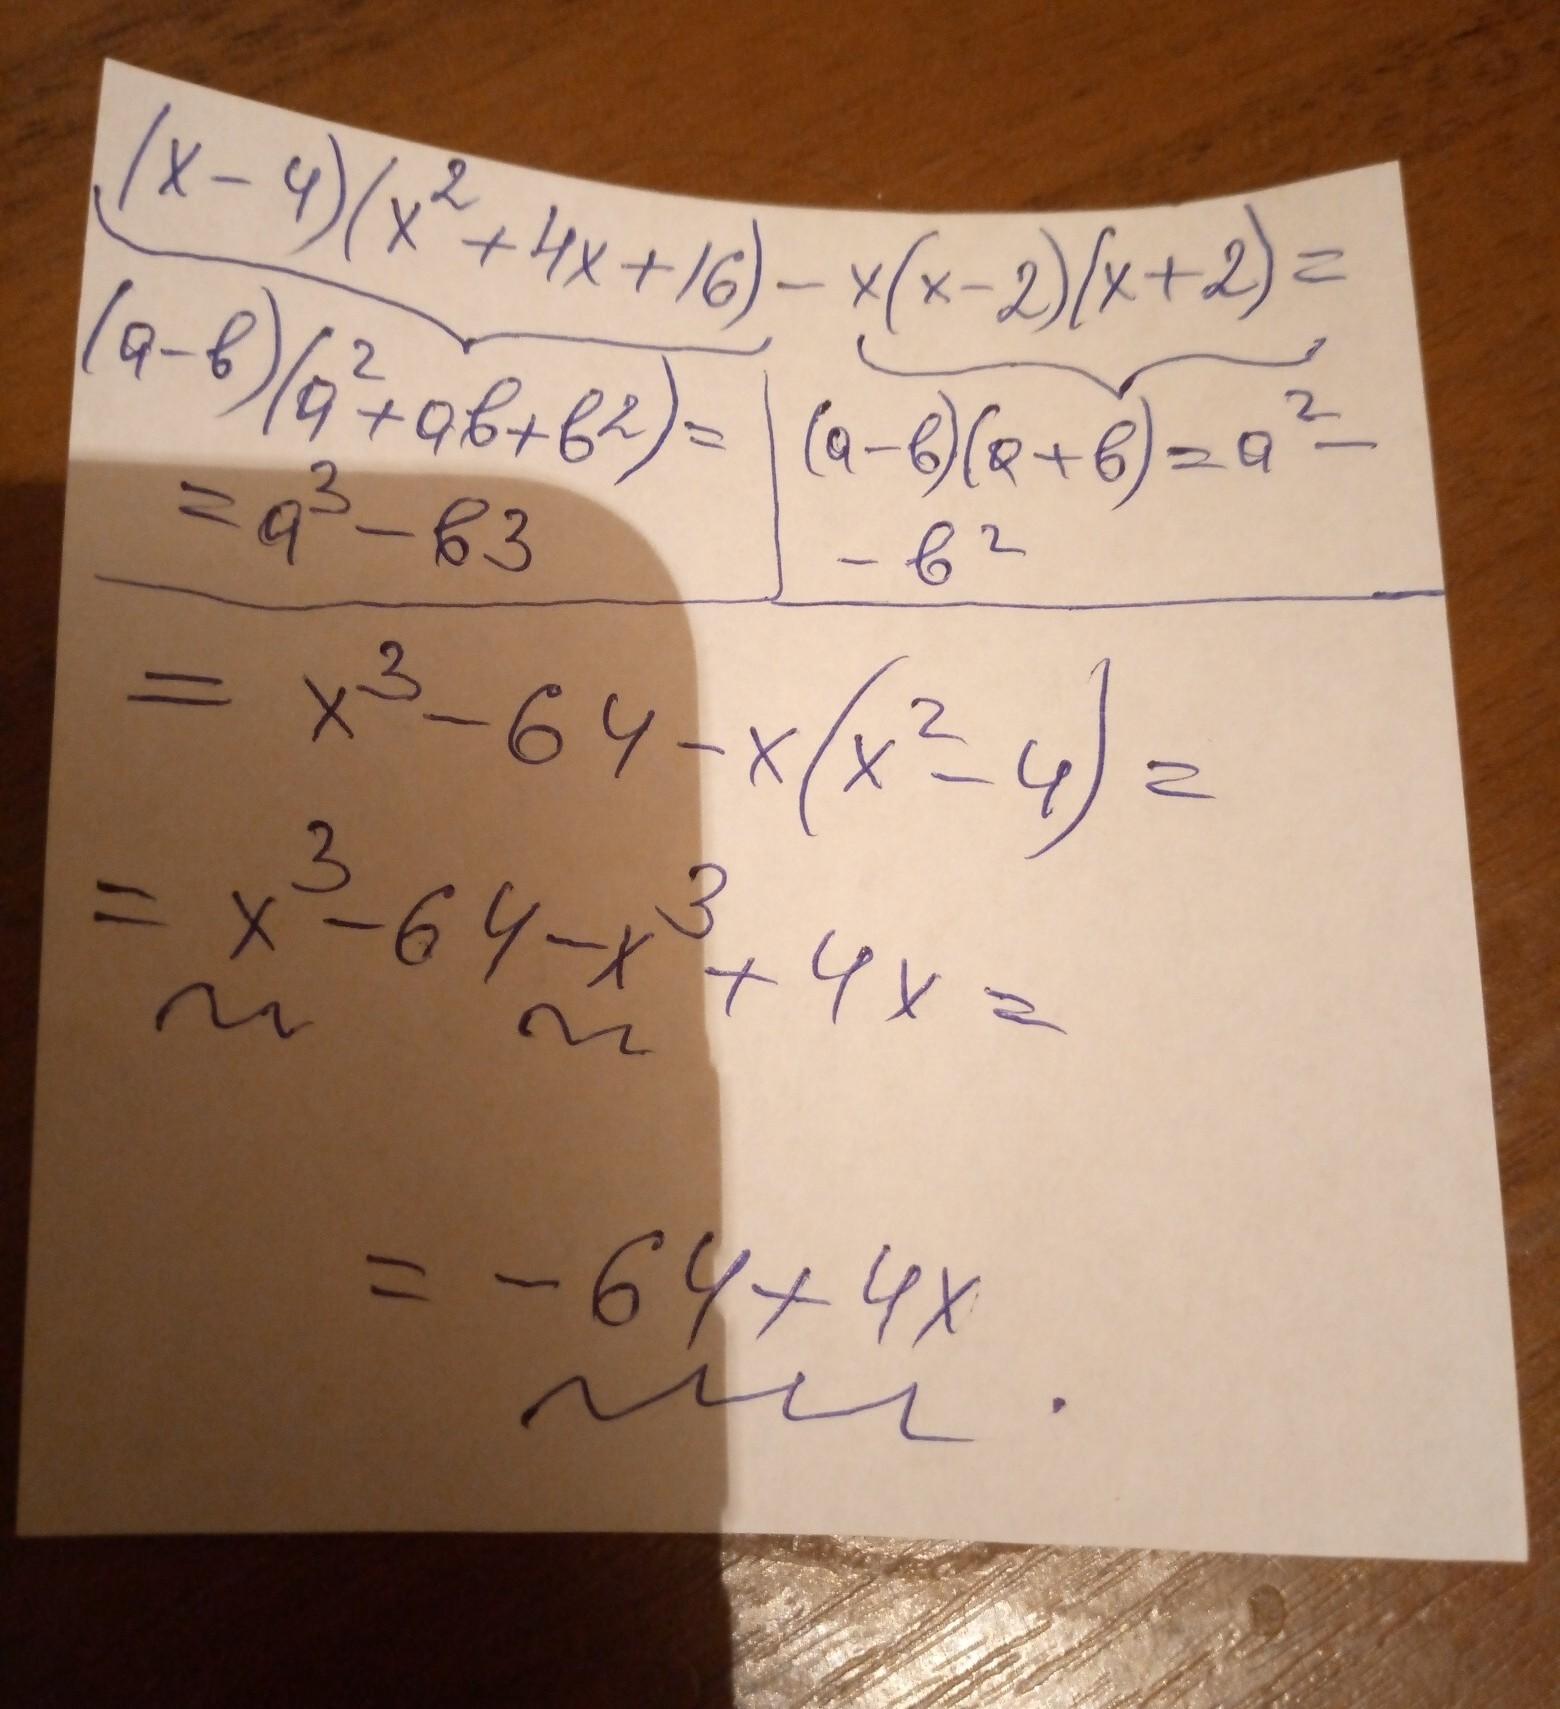 (x-4)(x²+4x+16)-x(x-2)(x+2)=
(a-в)(a²+aв+в2)=
=a³-в3
(a-в)(a+в)=a²-
-в²
=x³-64-x(x²-4)=
=x³-64-x³+4x=
=-64+4x.